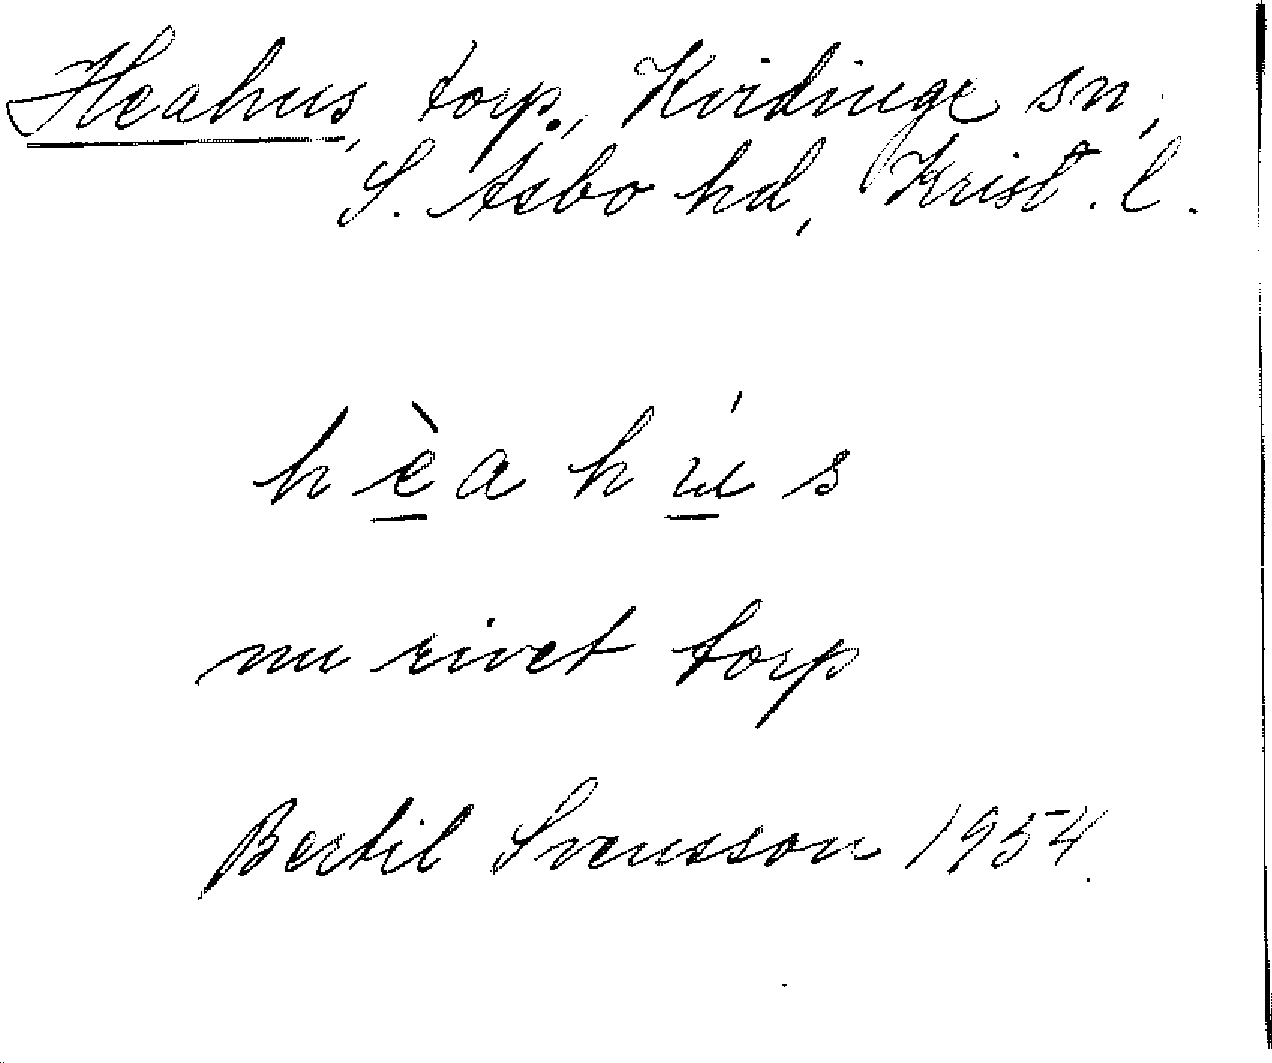 Heahus, torp, Kvidinge sn,
S. Åsbo hd, Krist. l.
hèahús
nu rivet torp
Bertil Svensson 1954.